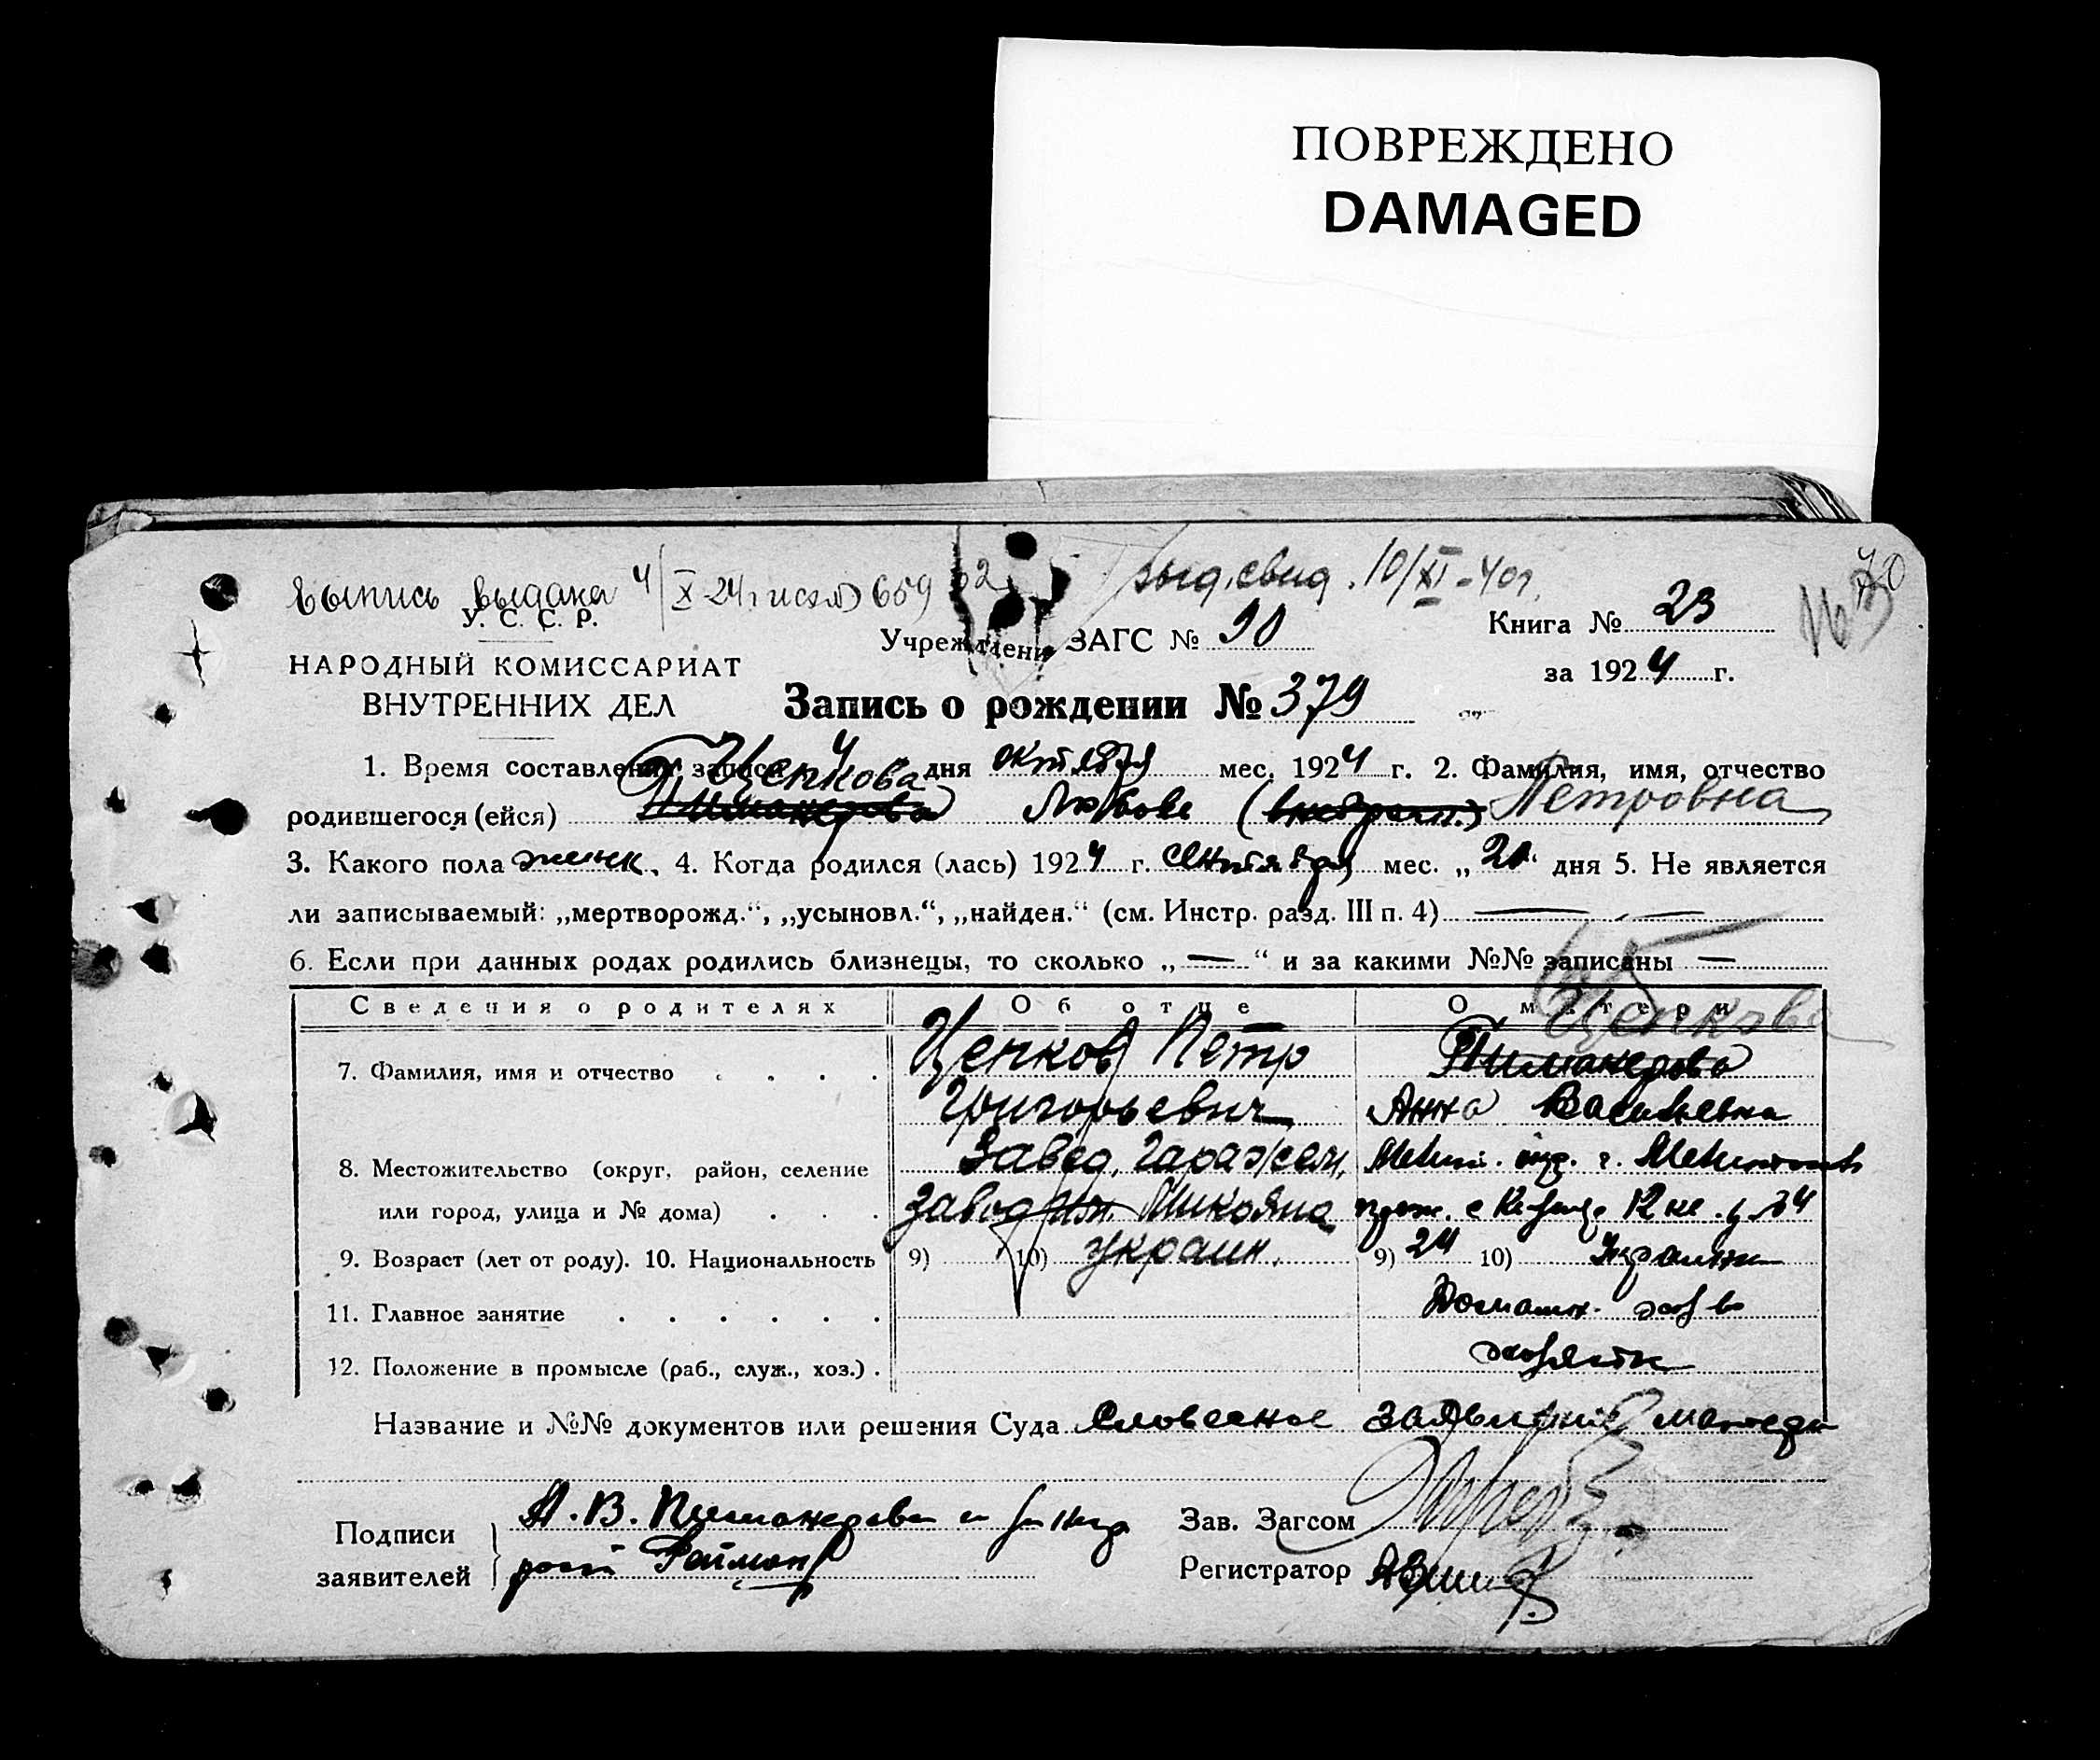 ПОВРЕЖДЕНО
DAMAGED
Выпись выдана 4/X-24 г. исх № 659
выд. свид. 10/XI-40г.
У. С. С. Р.
НАРОДНЫЙ КОМИССАРИАТ
ВНУТРЕННИХ ДЕЛ
Учреждение ЗАГС №
Книга № 23
за 1924 г.
Запись о рождении № 379
1. Время составления записи 4 дня октября мес. 1924 г. 2. Фамилия, имя, отчество
Цепкова
родившегося (ейся) Любовь Петровна
3. Какого пола женск. 4. Когда родился (лась) 1924 г. Сентября мес. „ “ дня 5. Не является
ли записываемый: „мертворожд.“, „усыновл.“, „найден.“ (см. Инстр. разд. III п. 4) —
6. Если при данных родах родились близнецы, то сколько „—“ и за какими №№ записаны —
Сведения о родителях Об отце О матери
Цепкова
7. Фамилия, имя и отчество Цепков Петр
Григорьевич Анна Васильевна
8. Местожительство (округ, район, селение Завед. Гаражем,
или город, улица и № дома) завод им. Микояна
9. Возраст (лет от роду). 10. Национальность 9) 10) украин. 9) 24 10) Украинк
11. Главное занятие Домашн. хоз во
12. Положение в промысле (раб., служ., хоз.)
Название и №№ документов или решения Суда Словесное заявление матери
Подписи
заявителей
А. В.
Зав. Загсом
Регистратор